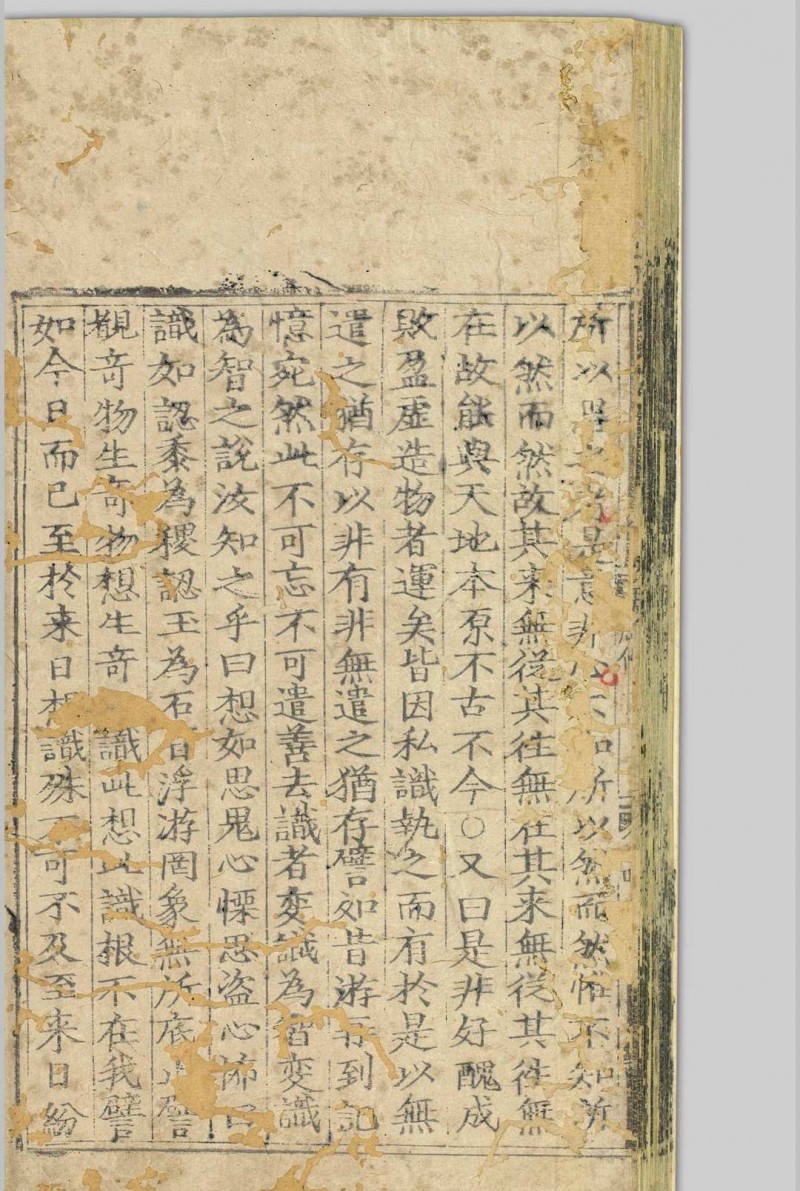 所以之者是意非不知所以然而然惟不知所
以然而然故其来無從其往無在其来無從其徃無
在故能與天地本原不古不今○又曰是非好醜成
敗盈虛造物者運矣皆因私識執之而有於是以無
遣之猶存以非有非無遣之猶存譬如昔游再到記
憶宛然此不可忘不可遣善去識者変識為智变識
為智之說汝知之乎曰想如思鬼心慄思盗心怖曰
識如認黍為稷認玉為石皆浮游罔象無所底止譬
覩奇物生奇物想生奇識此想此識根不在我譬
如今日而已至於来日想識殊可不及至来日紛